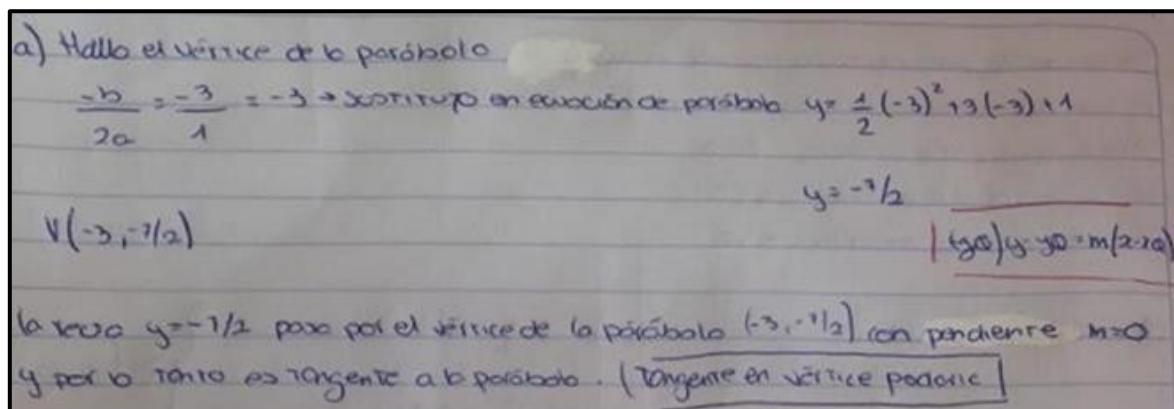 a) Hallo el vértice de la parábola
-b/2a = -3/1 = -3 → sustituyo en ecuación de parábola y = 1/2 (-3)² + 3(-3) + 1
y = -7/2
V(-3, -7/2)
y-y0 = m(x-x0)
la recta y = -7/2 pasa por el vértice de la parábola (-3, -7/2) con pendiente m=0
y por lo tanto es tangente a la parábola. (Tangente en vértice